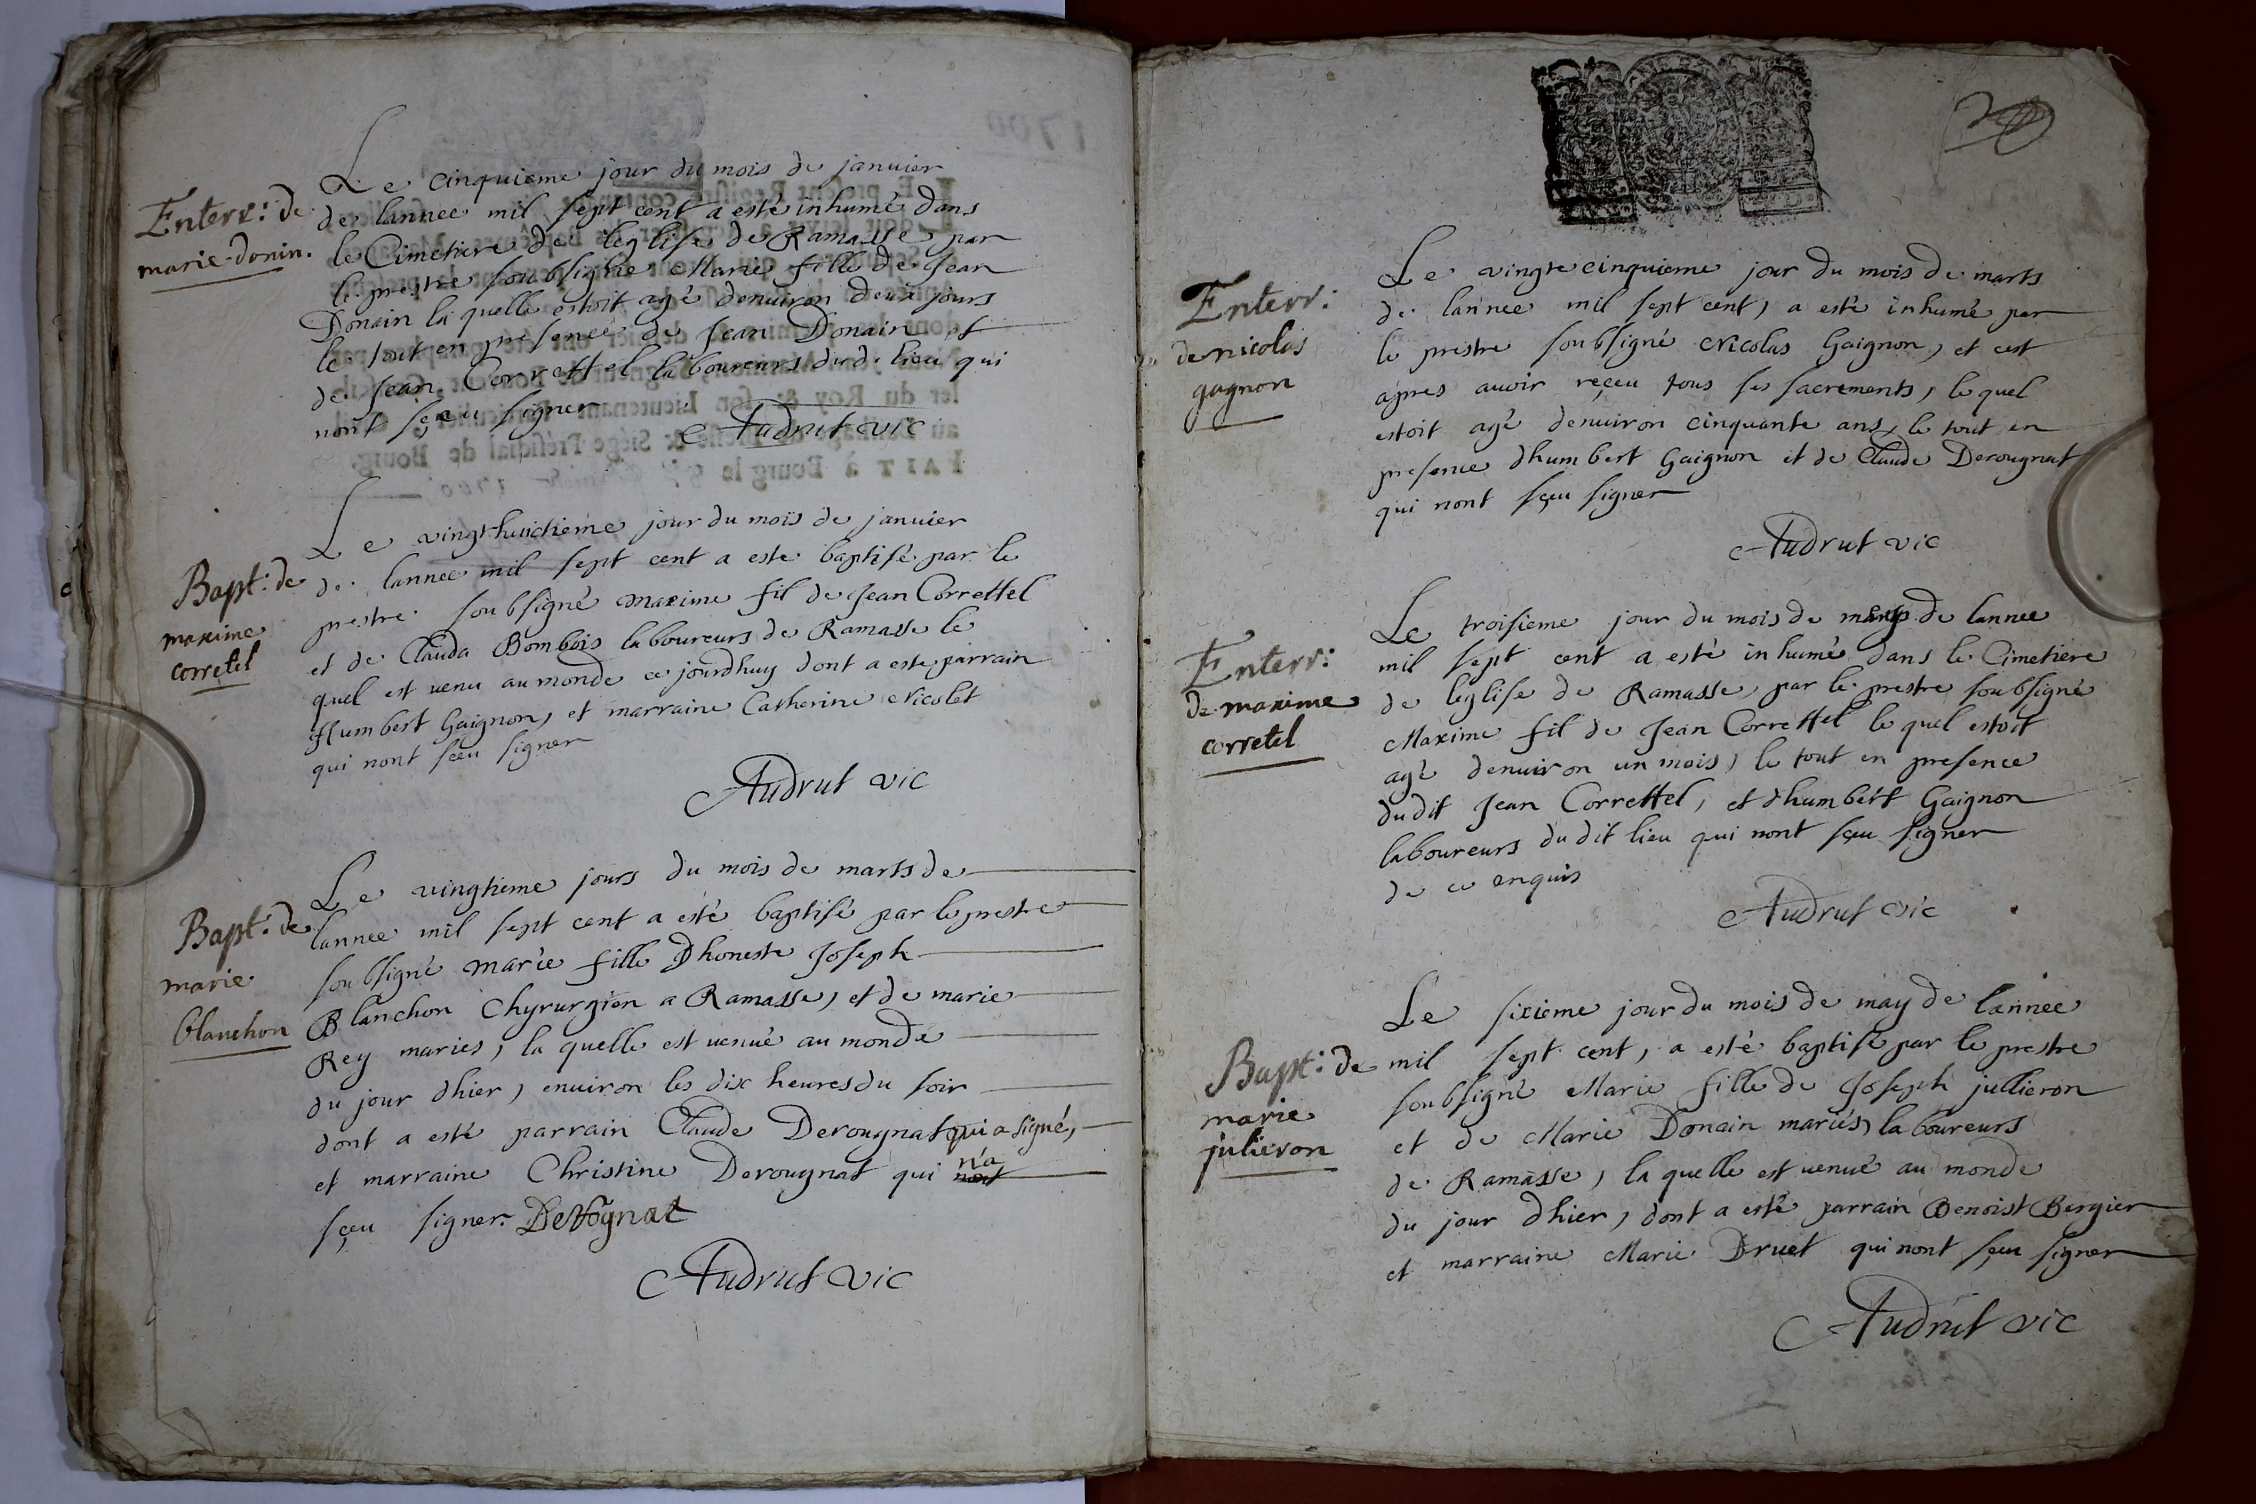 Enterr: de
marie donin.
Le cinquieme jour du mois de januier
de lannee mil sept cent a esté inhumé dans
le Cimetiere de leglise de Ramasse par
le prestre soubsigné Marie fille de Jean
Donain la quelle estoit agé denuiron deux jours
le tout en presence de Jean Donain et
de Jean Correttel laboureurs dud. lieu qui
nont sçeu signer
Audrut vic
Bapt: de
maxime
corretel
Le vingt huictieme jour du mois de januier
de lannee mil sept cent a esté baptisé par le
prestre soubsigné maxime fil de Jean Correttel
et de Clauda Bombois laboureurs de Ramasse le
quel est venu au monde ce jourdhuy dont a esté parrain
Humbert Gaignon, et marraine Catherine Nicolet
qui nont sçeu signer
Audrut vic
Bapt: de
marie
blanchon
Le vingtieme jours du mois de marts de
lannee mil sept cent a esté baptisé par le prestre
soubsigné marie fille Dhoneste Joseph
Blanchon Chyrurgien a Ramasse, et de marie
Rey mariés, la quelle est venuë au monde
du jour dhier, enuiron les dix heures du soir
dont a esté parrain Claude Derougnat qui a signé,
et marraine Christine Derougnat qui n'a
sçeu signer. Derognat
Audrut vic
Enterr:
de nicolas
gagnon
Le vingt cinquieme jour du mois de marts
de lannee mil sept cent, a esté inhumé par
le prestre soubsigné Nicolas Gaignon, et cest
apres auoir reçeu tous ses sacrements, le quel
estoit agé denuiron cinquante ans, le tout en
presence dhumbert Gaignon et de Claude Derougnat
qui nont sçeu signer
Audrut vic
Enterr:
de maxime
corretel
Le troisieme jour du mois de de lannee
mil sept cent a esté inhumé dans le Cimetiere
de leglise de Ramasse, par le prestre soubsigné
Maxime fil de Jean Correttel le quel estoit
agé denuiron un mois, le tout en presence
dudit Jean Correttel, et dhumbert Gaignon
laboureurs dudit lieu qui nont sçeu signer
de ce enquis
Audrut vic
Bapt: de
marie
julieron
Le sixieme jour du mois de may de lannee
mil sept cent, a esté baptisé par le prestre
soubsigné Marie fille de Joseph jullieron
et de Marie Donain mariés, laboureurs
de Ramasse, la quelle est venuë au monde
du jour dhier, dont a esté parrain Benoist Bergier
et marraine Marie Druet qui nont sçeu signer
Audrut vic